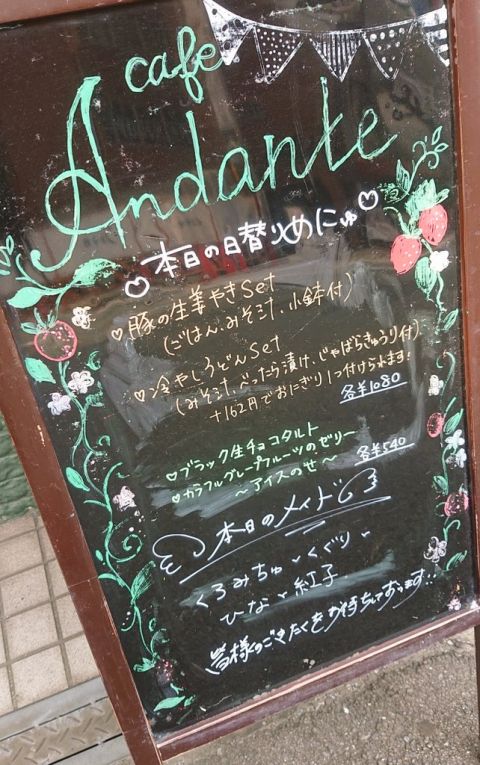 cafe
Andante
♡本日の日替りめにゅ♡
♡豚の生姜やきSet
(ごはん、みそ汁、小鉢付)
♡冷やしうどんSet
(みそ汁、べったら漬け、じゃばらきゅうり付)
+162円でおにぎり1つ付けられます!
各¥1080
♡ブラック生チョコタルト
♡カラフルグレープフルーツのゼリー
〜アイスのせ〜
各¥540
本日のメイド
くろみちゅ・くぐり・
ひな・紅子
皆様のごきたくをお待ちしております…